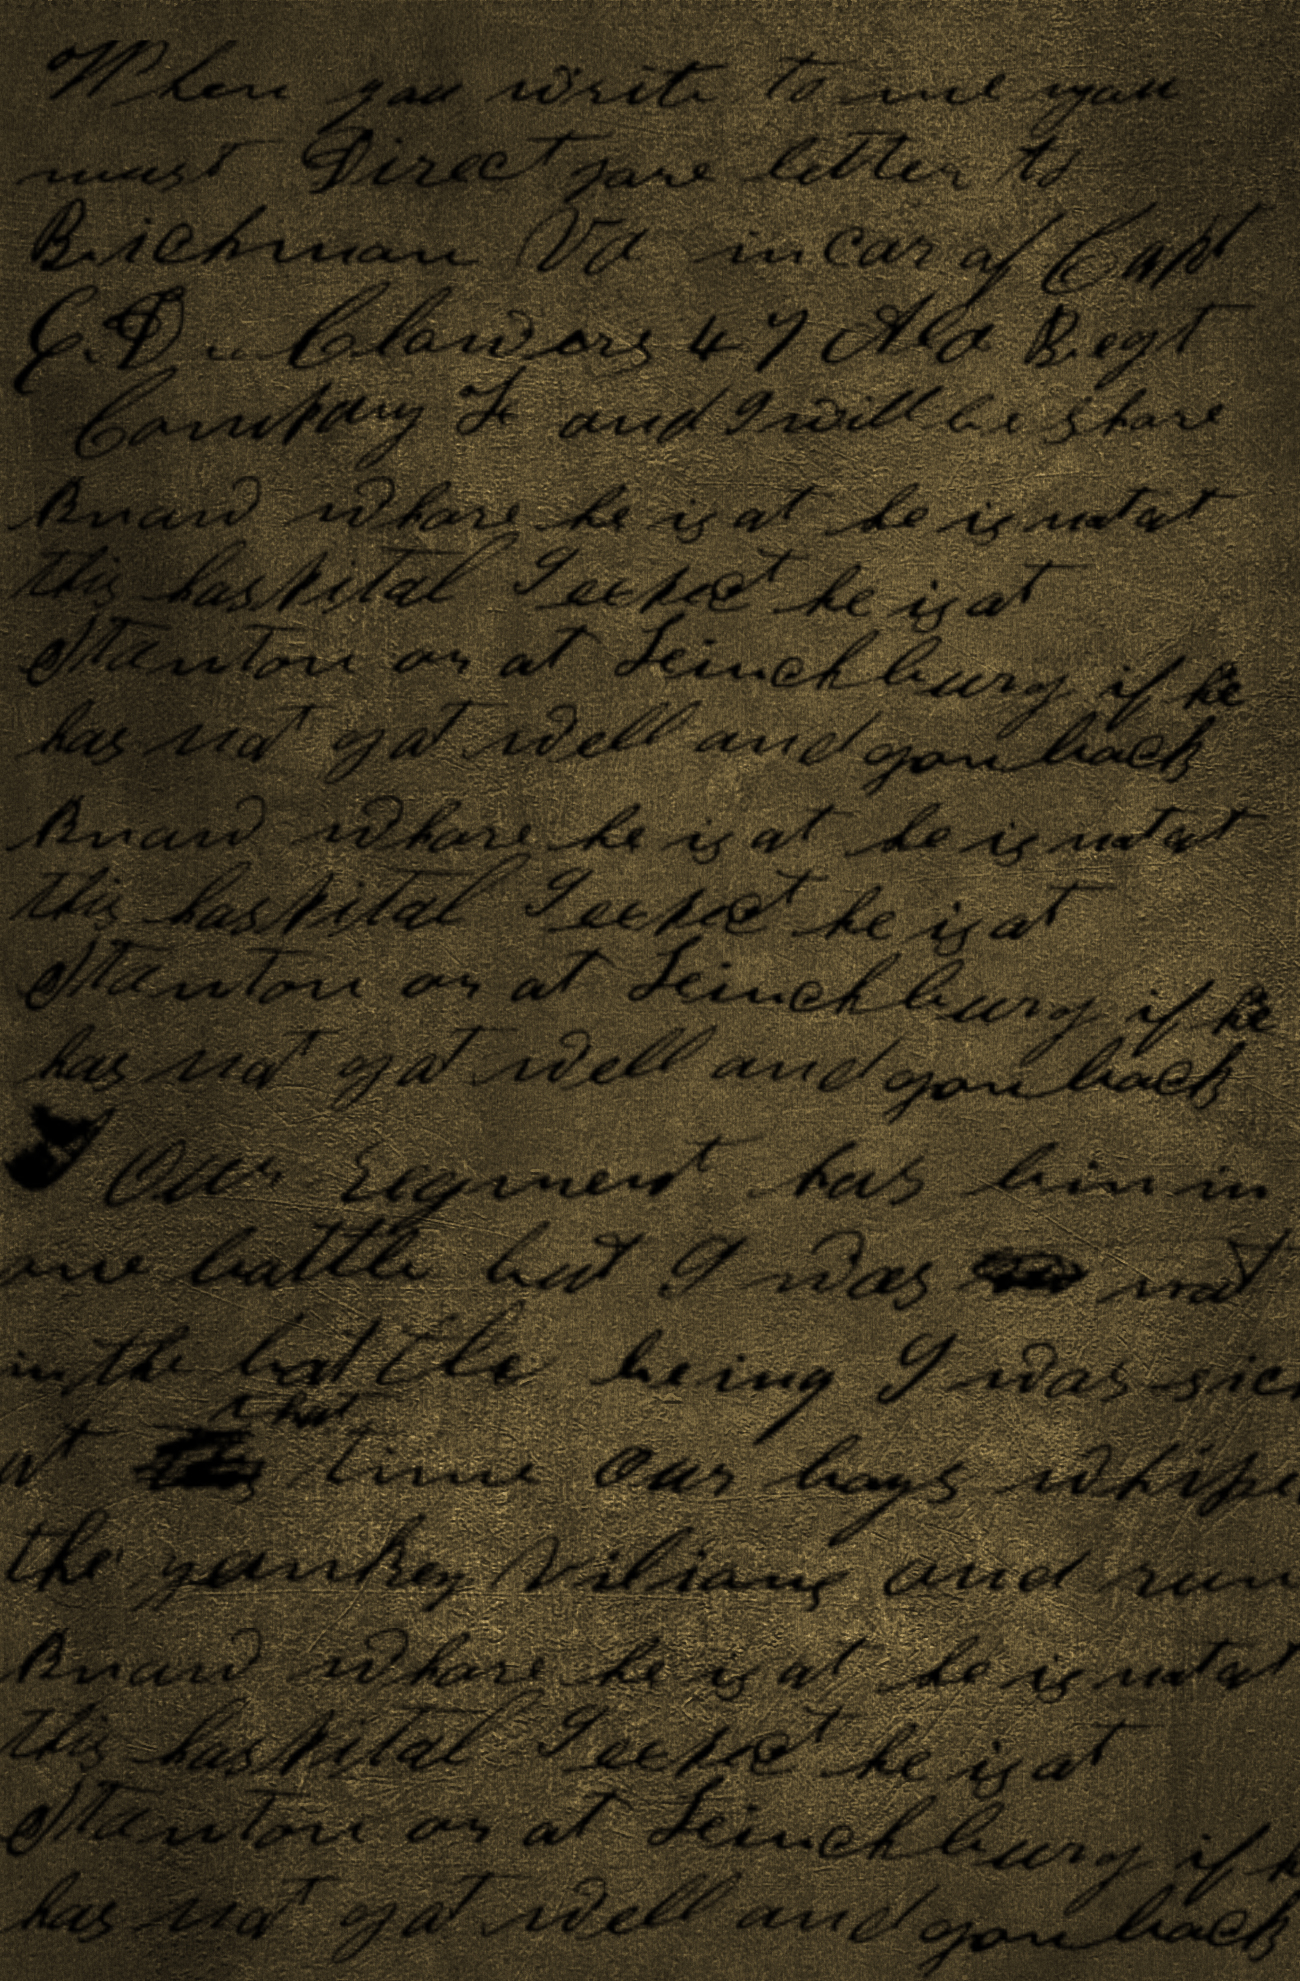 When you write to me you
must Direct yare letter to
Richman Va in car of Capt
C.D. Clowers 47 Ala Regt
Company F and I will be share
Knaw whare he is at he is nat at
this haspital I exspect he is at
Stanton or at Leinchburg if he
has nat gat well and gon back
Knaw whare he is at he is nat at
this haspital I exspect he is at
Stanton or at Leinchburg if he
has nat gat well and gon back
Our regment has bin in
one battle but I was nat
in the battle being I was sick
at that time Our boys whipe
the yankey Vilians and run
Knaw whare he is at he is nat at
this haspital I exspect he is at
Stanton or at Leinchburg if he
has nat gat well and gon back